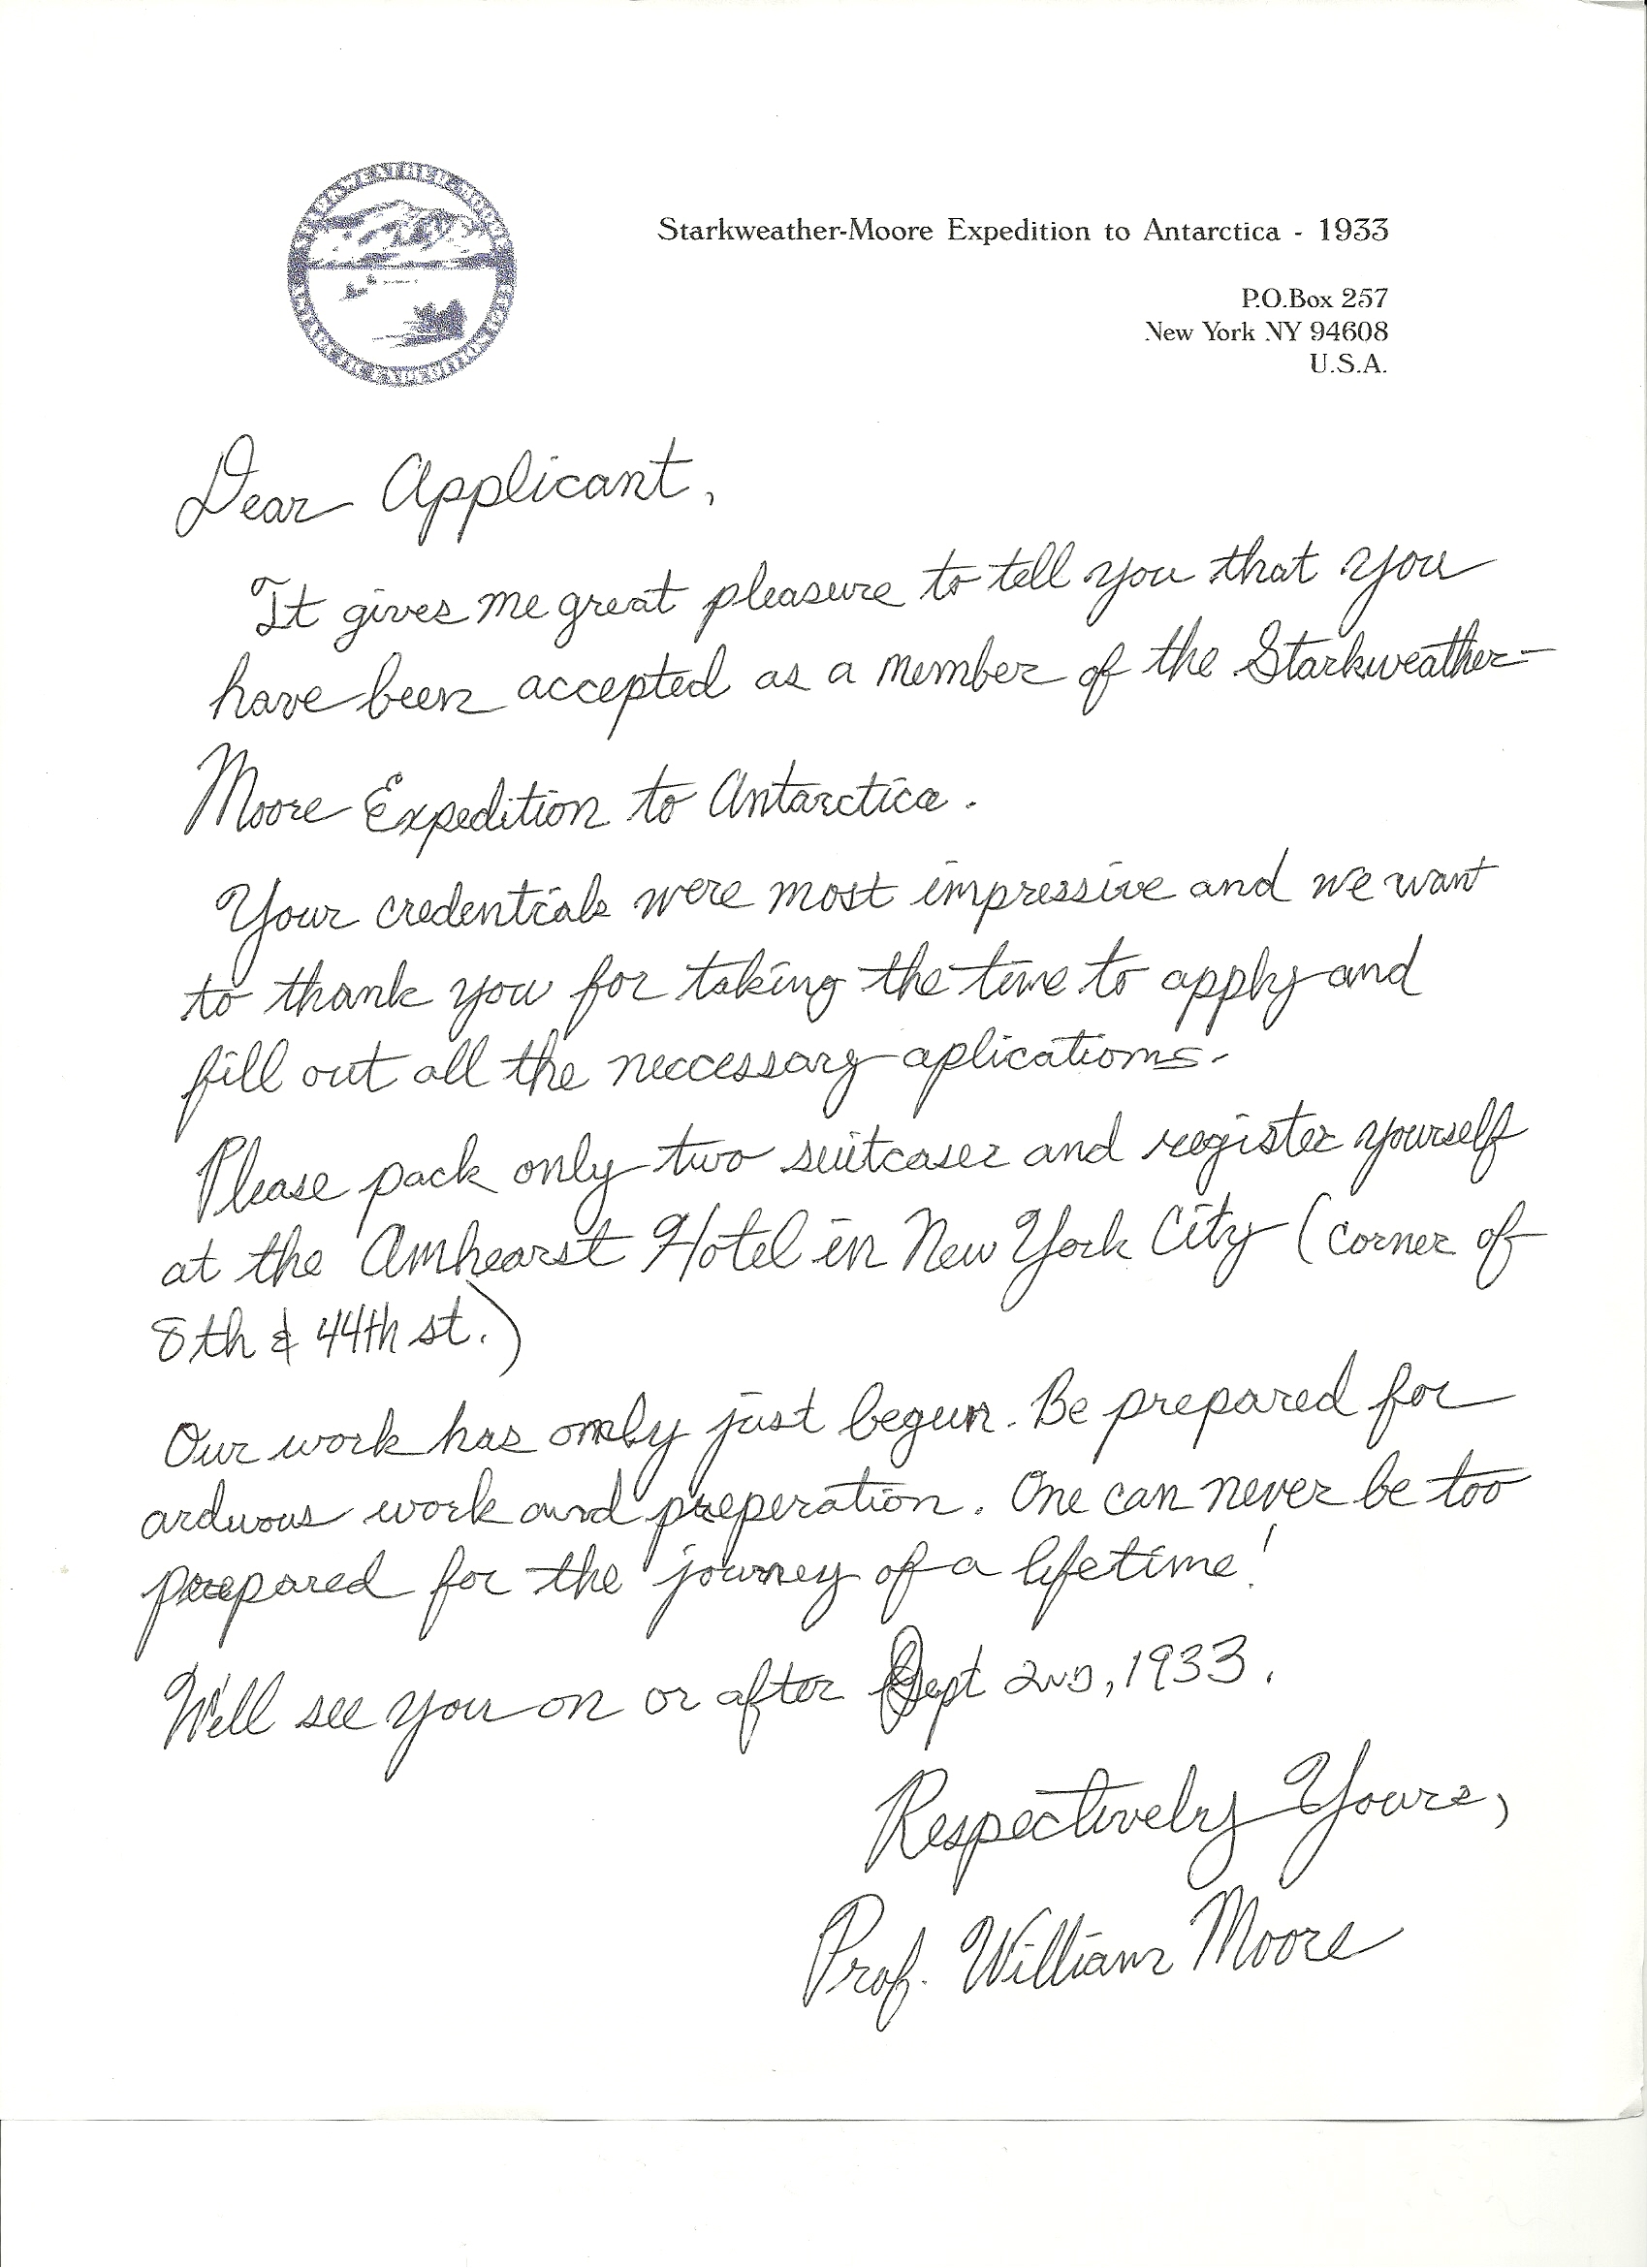 STARKWEATHER-MOORE
ANTARCTIC EXPEDITION
Starkweather-Moore Expedition to Antarctica - 1933
P.O.Box 257
New York NY 94608
U.S.A.
Dear Applicant,
It gives me great pleasure to tell you that you
have been accepted as a member of the Starkweather-
Moore Expedition to Antarctica.
Your credentials were most impressive and we want
to thank you for taking the time to apply and
fill out all the neccessary aplications.
Please pack only two suitcases and register yourself
at the Amhearst Hotel in New York City (corner of
8th & 44th st.)
Our work has only just begun. Be prepared for
arduous work and preperation. One can never be too
prepared for the journey of a lifetime!
We'll see you on or after Sept 2ND, 1933.
Respectively Yours,
Prof. William Moore